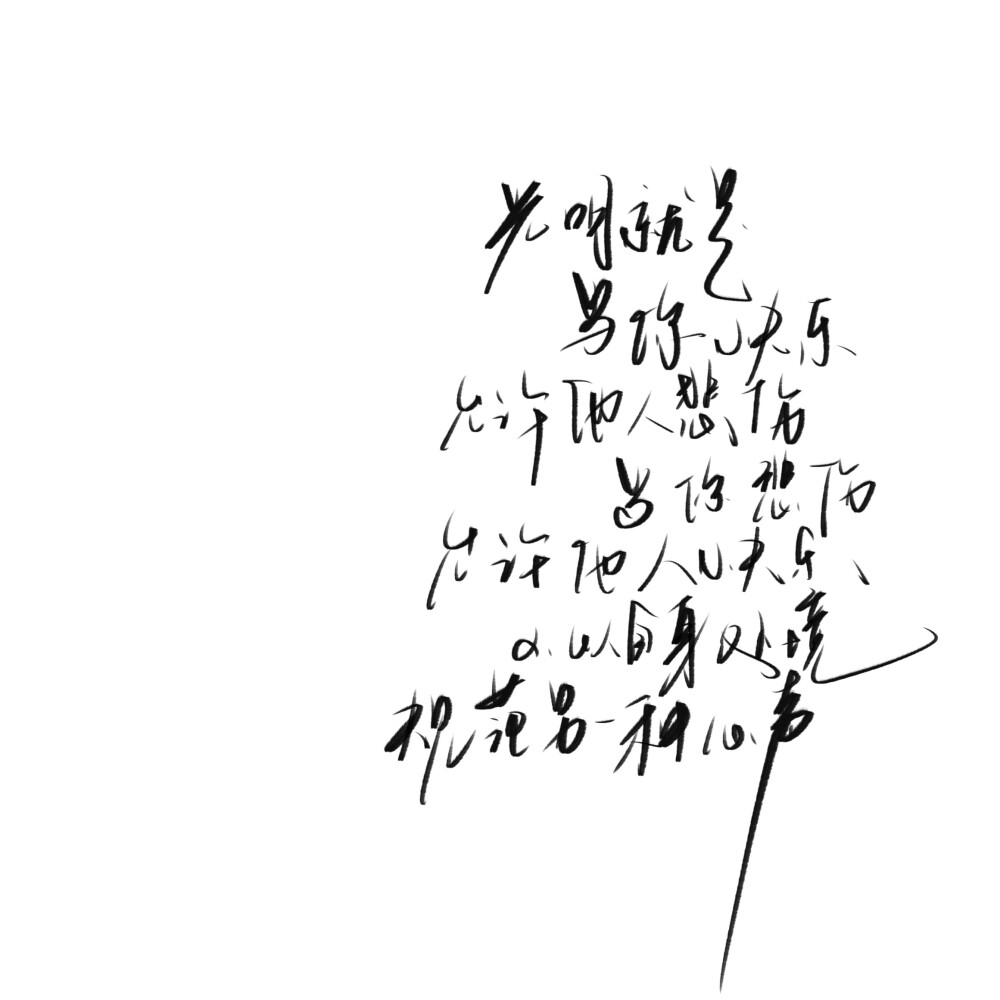 光明就是
当你快乐
允许他人悲伤
当你悲伤
允许他人快乐、
不以自身处境
视范另一种心声